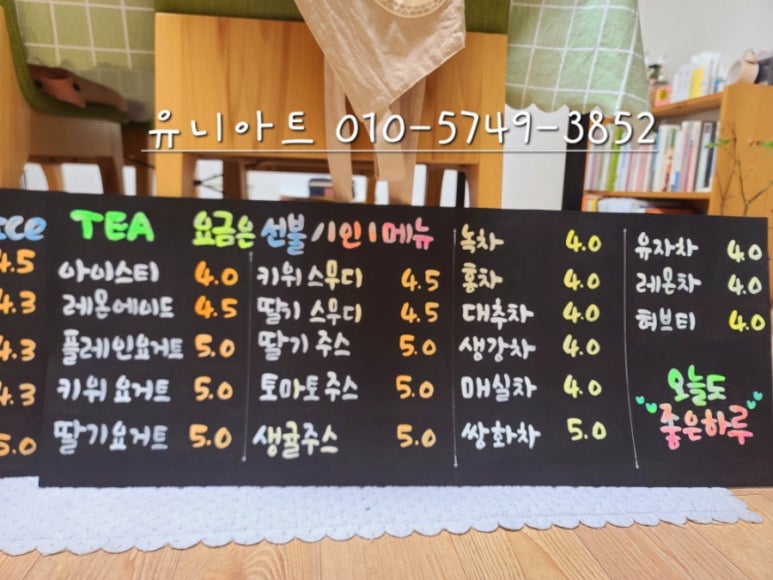 유니아트 010-5749-3852
ice TEA 요금은 선불/1인1메뉴
4.5
4.3
4.3
4.3
5.0
아이스티 4.0
레몬에이드 4.5
플레인요거트 5.0
키위요거트 5.0
딸기요거트 5.0
키위스무디 4.5
딸기스무디 4.5
딸기주스 5.0
토마토주스 5.0
생귤주스 5.0
녹차 4.0
홍차 4.0
대추차 4.0
생강차 4.0
매실차 4.0
쌍화차 5.0
유자차 4.0
레몬차 4.0
허브티 4.0
오늘도
좋은하루